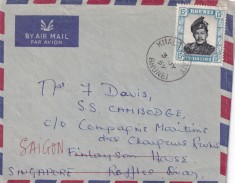 BY AIR MAIL
PAR AVION
BRUNEI
BRUNEI
7 Davis,
S.S. CAMBODGE,
c/o Compagnie Maritime
des Chargeurs Réunis
SAIGON
Finlayson House
SINGAPORE Raffles Quay